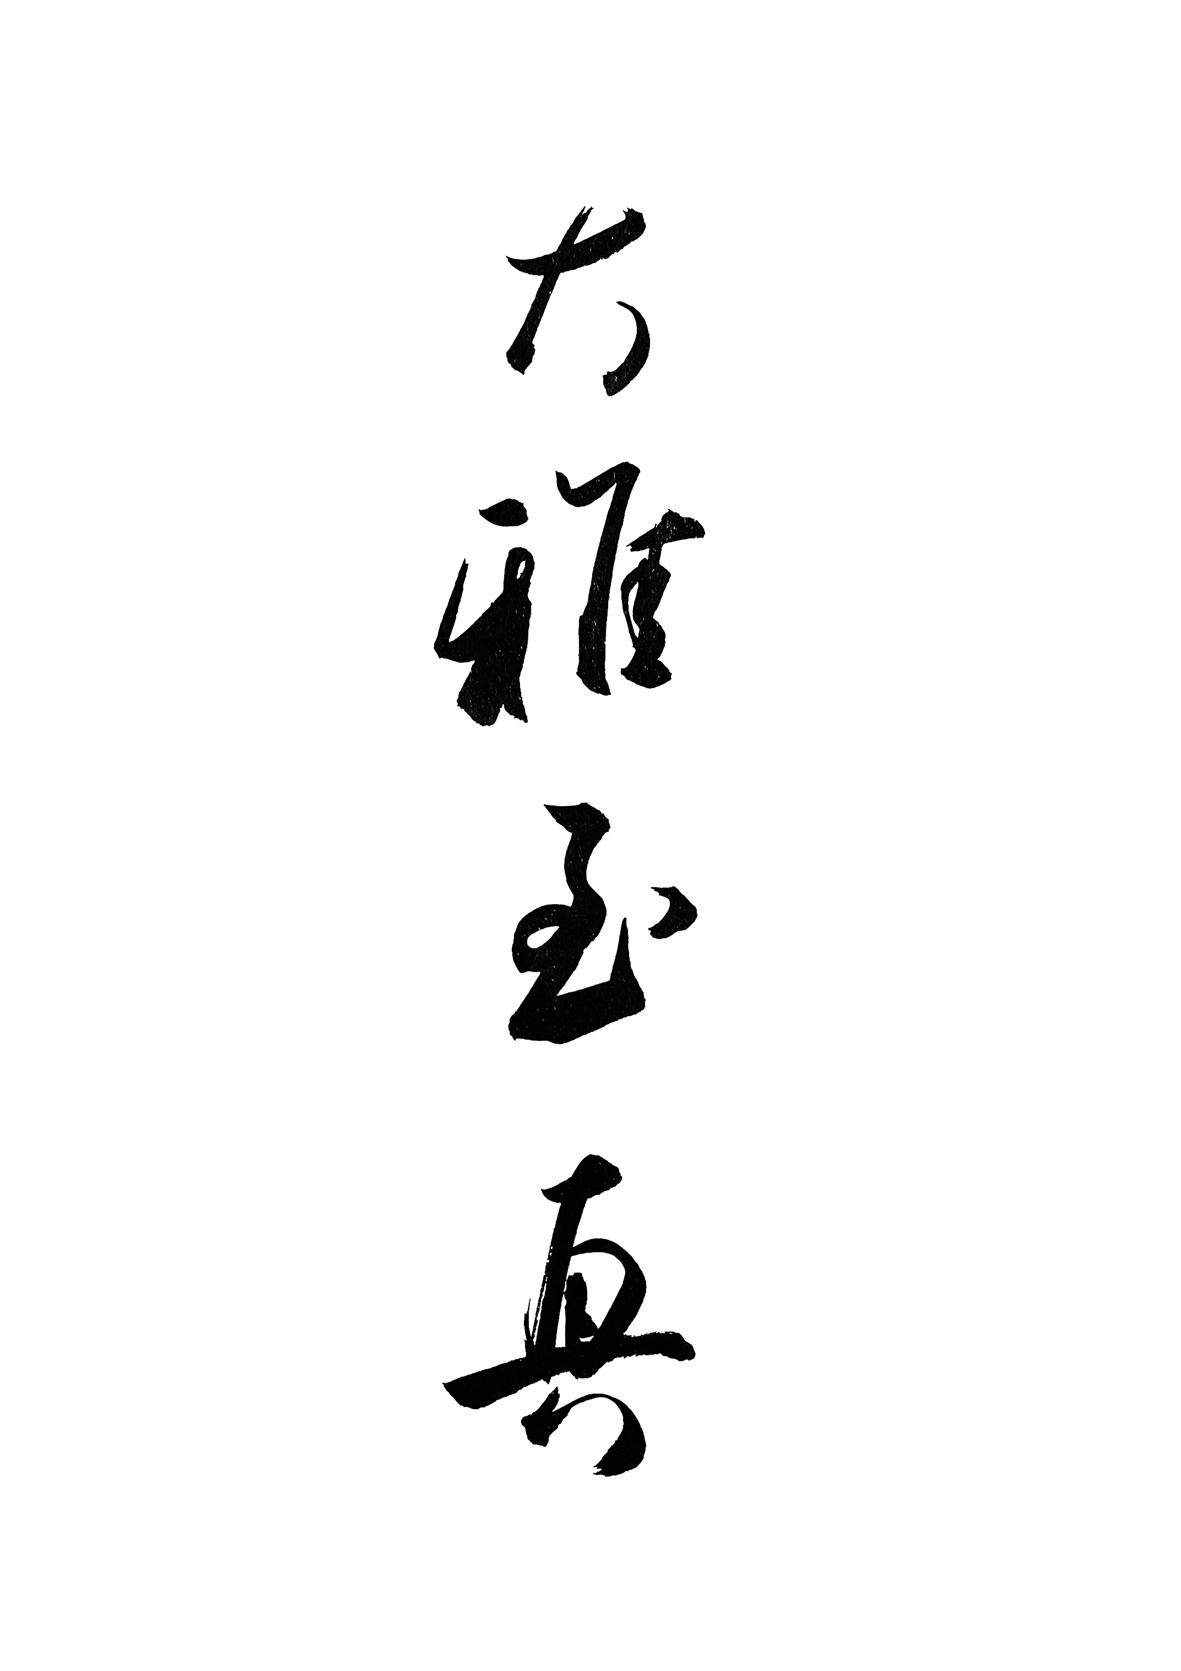 大雅至真